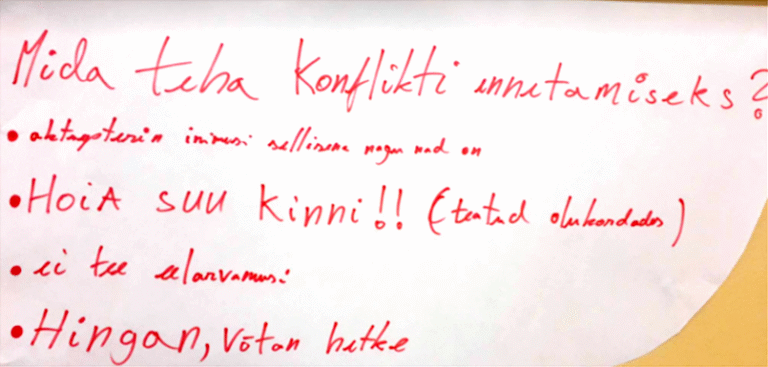 Mida teha konflikti ennetamiseks?
• aktsepteerin inimesi sellisena nagu nad on
• HOIA SUU kinni!! (teatud olukordades)
• ei tee eelarvamusi
• Hingan, võtan hetke